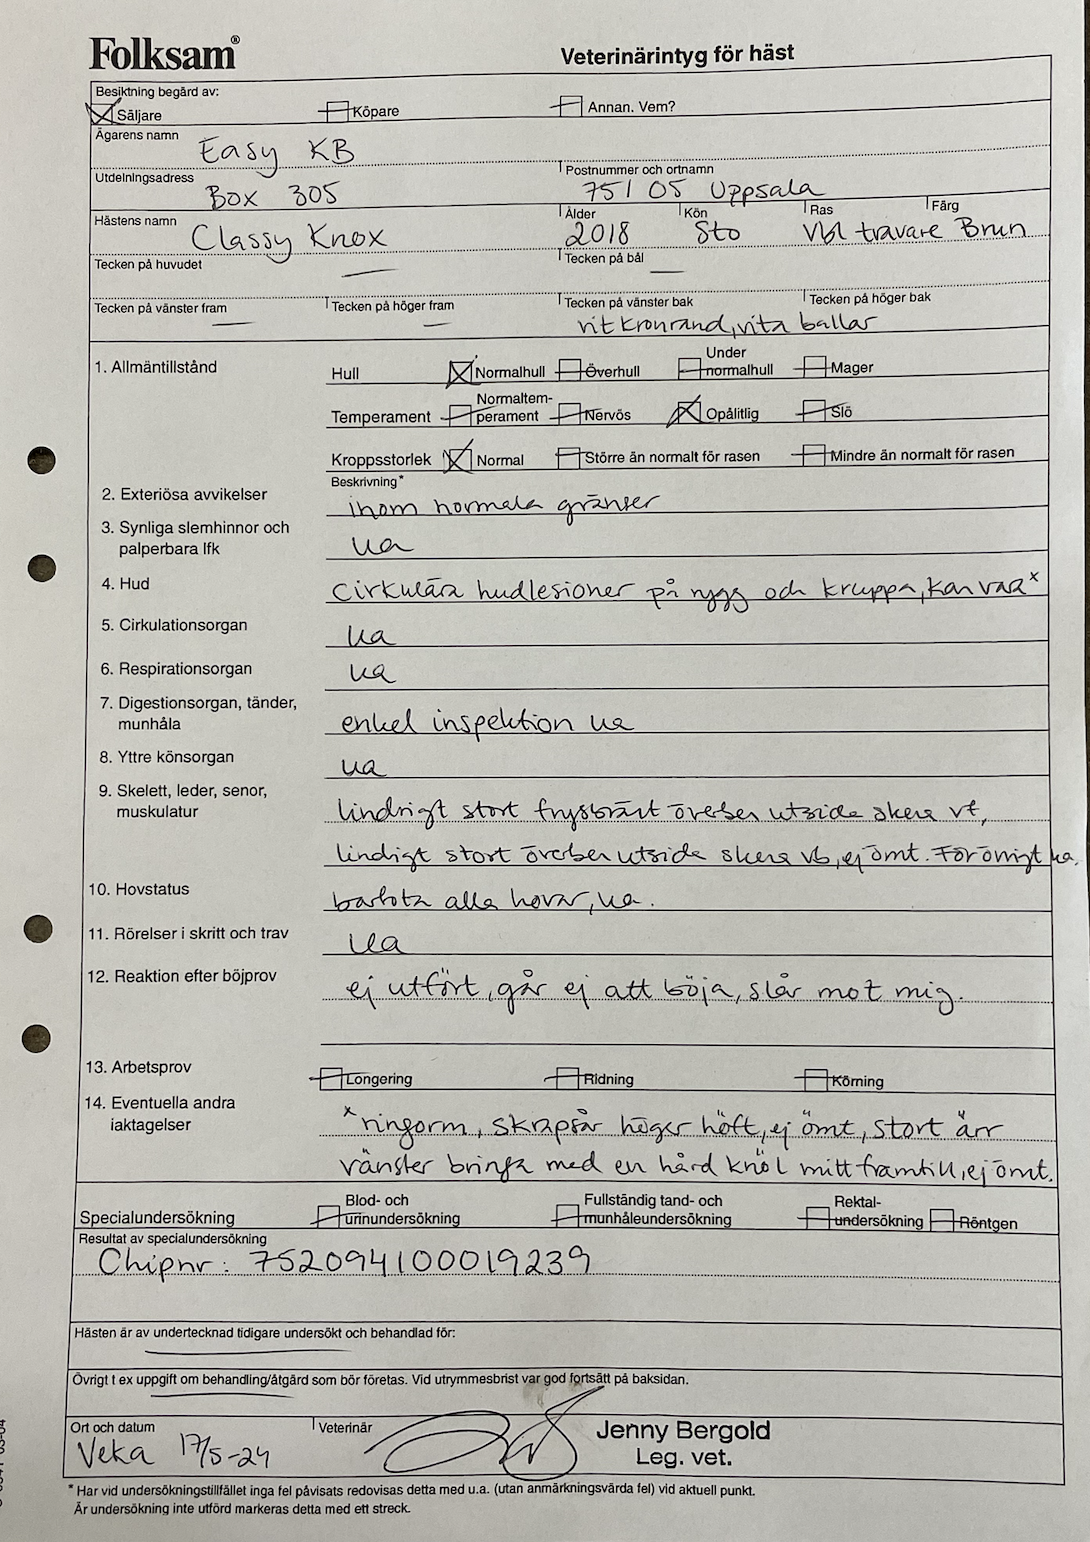 Folksam®
Veterinärintyg för häst
Besiktning begärd av:
Säljare Köpare Annan. Vem?
Ägarens namn
Easy KB
Utdelningsadress Postnummer och ortnamn
Box 305 751 05 Uppsala
Hästens namn Ålder Kön Ras Färg
Classy Knox 2018 Sto Vbl travare Brun
Tecken på huvudet Tecken på bål
Tecken på vänster fram Tecken på höger fram Tecken på vänster bak Tecken på höger bak
vit kronrand, vita ballar
1. Allmäntillstånd Hull Normalhull Överhull Under normalhull Mager
Temperament Normaltem-perament Nervös Opålitlig Slö
Kroppsstorlek Normal Större än normalt för rasen Mindre än normalt för rasen
Beskrivning*
2. Exteriösa avvikelser inom normala gränser
3. Synliga slemhinnor och
palperbara lfk ua
4. Hud cirkulära hudlesioner på rygg och kruppa, kan vara x
5. Cirkulationsorgan ua
6. Respirationsorgan ua
7. Digestionsorgan, tänder,
munhåla enkel inspektion ua
8. Yttre könsorgan ua
9. Skelett, leder, senor,
muskulatur lindrigt stort frysbränt överben utsida skena vf,
lindrigt stort överben utsida skena vb, ej ömt. För övrigt ua.
10. Hovstatus barfota alla hovar, ua.
11. Rörelser i skritt och trav ua
12. Reaktion efter böjprov ej utfört, går ej att böja, slår mot mig.
13. Arbetsprov Longering Ridning Körning
14. Eventuella andra
iaktagelser x ringorm, skrapsår höger höft, ej ömt, stort ärr
vänster bringa med en hård knöl mitt framtill, ej ömt.
Specialundersökning Blod- och urinundersökning Fullständig tand- och munhåleundersökning Rektal-undersökning Röntgen
Resultat av specialundersökning
Chipnr: 752094100019239
Hästen är av undertecknad tidigare undersökt och behandlad för:
Övrigt t ex uppgift om behandling/åtgärd som bör företas. Vid utrymmesbrist var god fortsätt på baksidan.
Ort och datum Veterinär
Veka 17/5-24 Jenny Bergold
Leg. vet.
* Har vid undersökningstillfället inga fel påvisats redovisas detta med u.a. (utan anmärkningsvärda fel) vid aktuell punkt.
Är undersökning inte utförd markeras detta med ett streck.